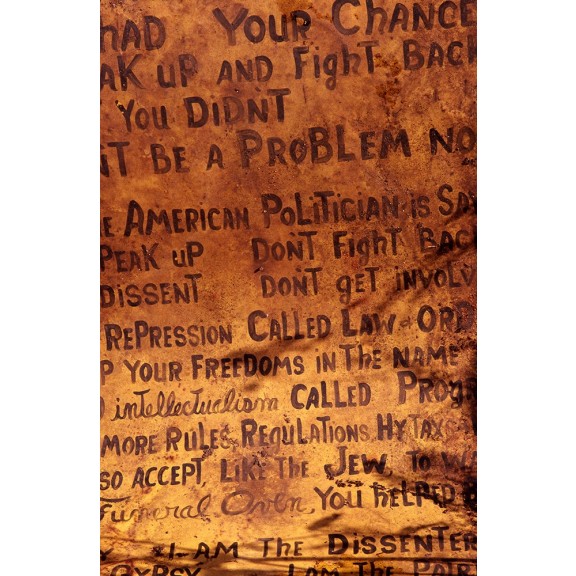 HAD YOUR CHANCE
AK UP AND Fight BACK
You DIDNT
NT BE A PROBLEM NO
E AMERICAN POLITICIAN iS SAY
PEAK UP DONT Fight BAC
DISSENT DONT get iNVOLV
REPRESSION CALLED LAW + ORD
P YOUR FREEDOMS IN The NAME
intellectualism CALLED PROg
MORE RULES, REGULATIONS, HY TAX
SO ACCEPT, LIKE THE JEW, TO W
Funeral Oven, You hELPED
I AM The DISSENTER
GYPSY I AM The PATR